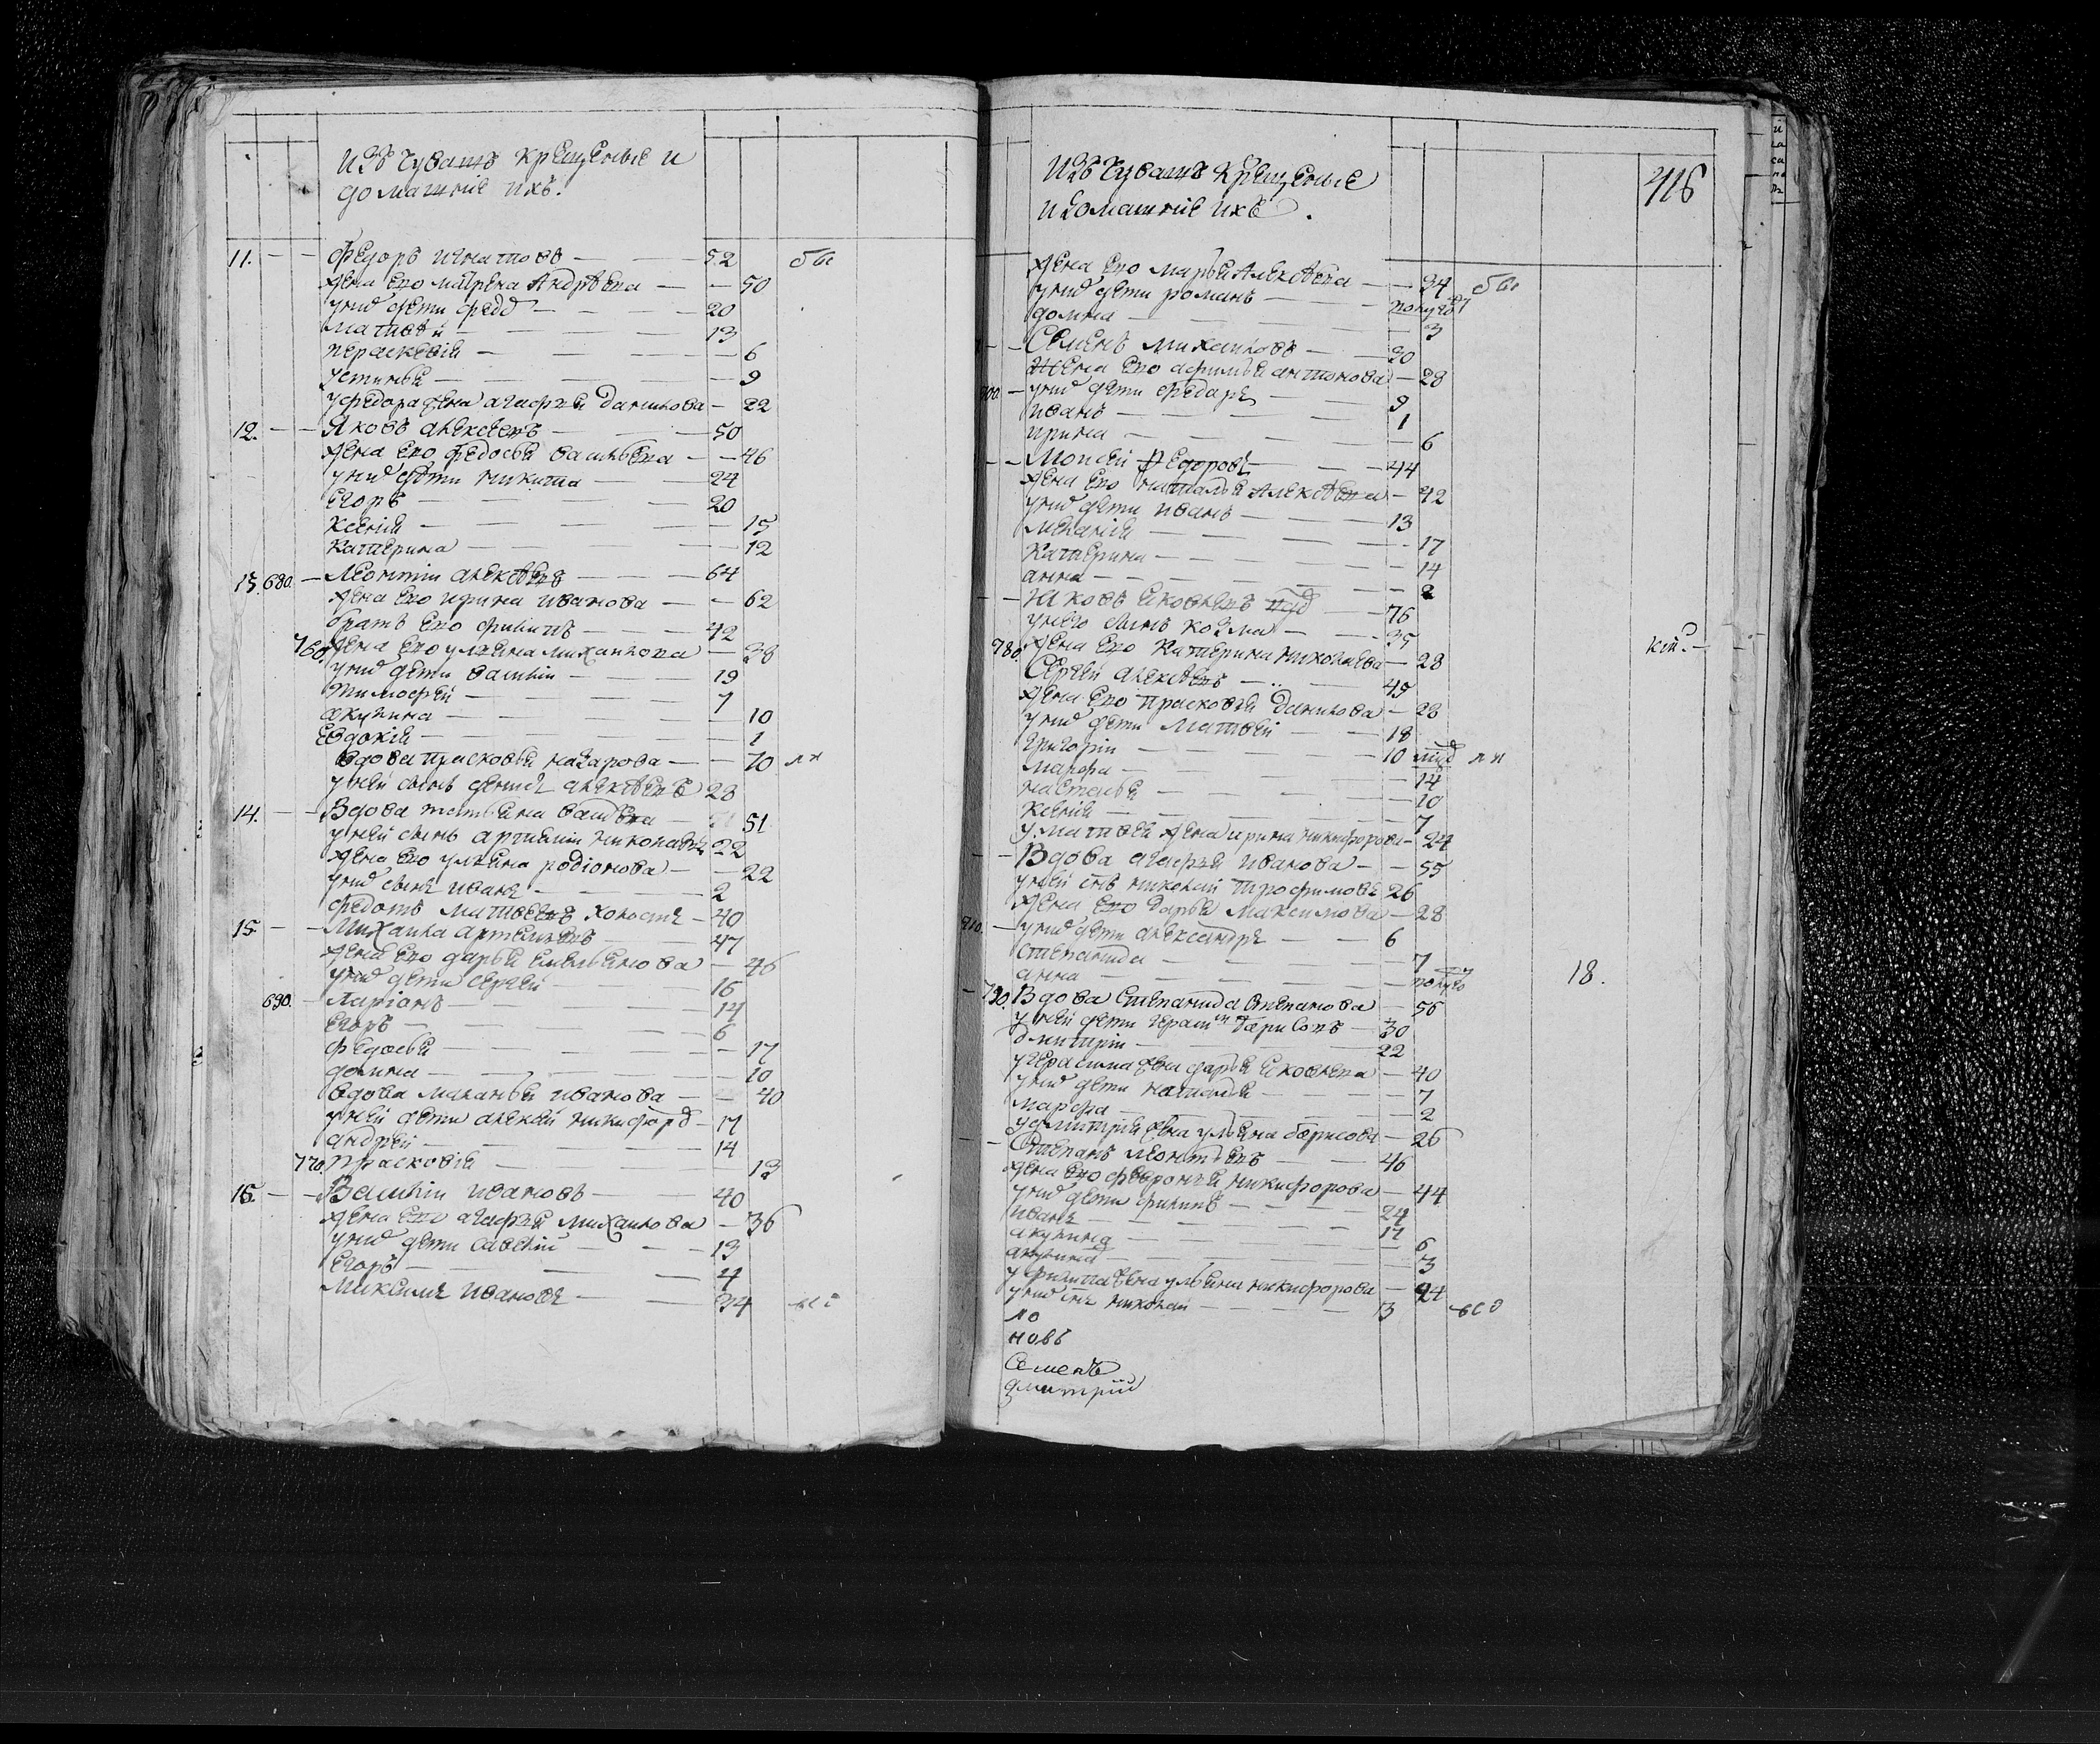 изъ чувашъ крещеные и
домашніе ихъ.
11. Федоръ Игнатовъ 52 бы
жена его матрена Андрѣева 50
у них дети федо 20
матвѣй 13
параскевія 6
устинья 9
у федора жена агафья данилова 22
12. Яковъ алексеевъ 50
жена его федосья васильева 46
у них дѣти никита 24
егоръ 20
ксенія 15
катерина 12
13. 680. Леонтіи алексѣевъ 64
жена его ирина иванова 62
братъ его филипъ 42
760. жена его ульяна михаилова 38
у них дети василіи 19
тимофей 7
акулина 10
Евдокія 1
вдова прасковья назарова 70
у ней сынъ денисъ алексѣевъ 23
14. Вдова татьяна 51
у ней сынъ артемии николаевъ 22
жена его ульяна родіонова 22
у них сынъ иванъ 2
федотъ матвеевъ холостъ 40
15. Михаила артемьевъ 47
жена его дарья емельянова 46
у них дети сергей 16
690. Ларіонъ 14
егоръ 6
федосья 17
домна 10
вдова маланья иванова 40
у ней дети алексей никифоро 17
андрей 14
770 прасковія 12
16. Василіи ивановъ 40
жена его агафья михаилова 36
у них дети савелій 13
егоръ 4
максимъ ивановъ 34
изъ чувашъ крещеные
и домашніе ихъ. 416
жена его марья Алексѣева 34 бы
у них дети романъ полуго
домна 3
Семенъ михаиловъ 30
жена его афимья антонова 28
700. у них дети федоръ 9
иванъ 1
ирина 6
Моисей Федоровъ 44
жена его наталья Алексѣева 42
у них дети иванъ 13
меланія 17
катерина 14
анна 2
Яковъ яковлевъ 76
у него сынъ козма 35
780. жена его катерина николаева 28
Сергей алексѣевъ 45
жена его прасковья данилова 28
у них дети матвей 18
григоріи 10
марфа 14
настасья 10
ксенія 7
у матвея жена ирина никифорова 24
Вдова агафья иванова 55
у ней снъ николай трофимовъ 26
жена его дарья максимова 28
710. у них дети александръ 6
степанида 7
анна полуго 18.
790. Вдова степанида степанова 56
у ней дети герасим борисовъ 30
дмитріи 22
у герасима жена дарья яковлева 40
у них дети наталья 7
марфа 2
у дмитрія жена ульяна борисова 26
Степанъ леонтьевъ 46
жена его февронья никифорова 44
у них дети филипъ 24
иванъ 17
акулина 6
акулина 3
у филипа жена ульяна никифорова 24
у них снъ николай 3
ло
новъ
Семенъ
дмитрій